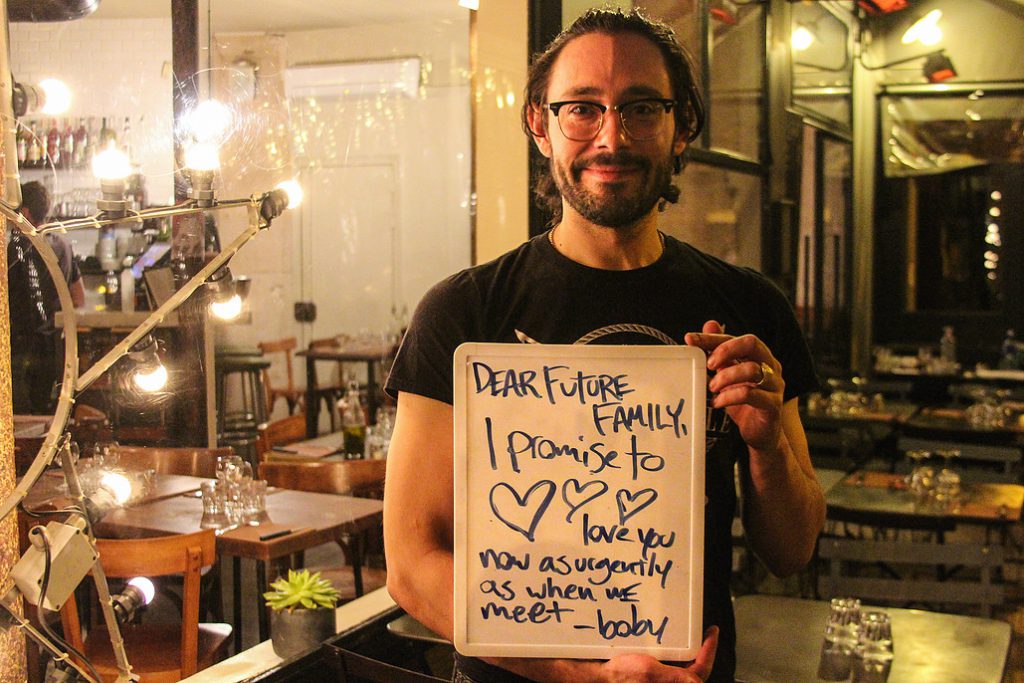 DEAR FUTURE
FAMILY,
I promise to
love you
now as urgently
as when we
meet - boby